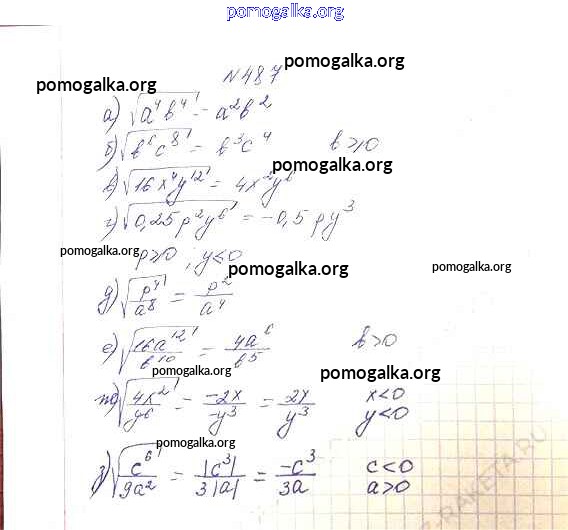 pomogalka.org
pomogalka.org
N 487
pomogalka.org
а) √a⁴b⁴ = a²b²
б) √b⁶c⁸ = b³c⁴ b≥0
pomogalka.org
в) √16x⁴y¹² = 4x²y⁶
г) √0,25p²y⁶ = -0,5py³
pomogalka.org p≥0, y≤0
pomogalka.org pomogalka.org
д) √p⁴/a⁸ = p²/a⁴
е) √16a¹²/b¹⁰ = 4a⁶/b⁵ b>0
pomogalka.org pomogalka.org
ж) √4x²/y⁶ = -2x/-y³ = 2x/y³ x<0 y<0
pomogalka.org
з) √c⁶/9a² = |c³|/3|a| = -c³/3a c<0 a>0